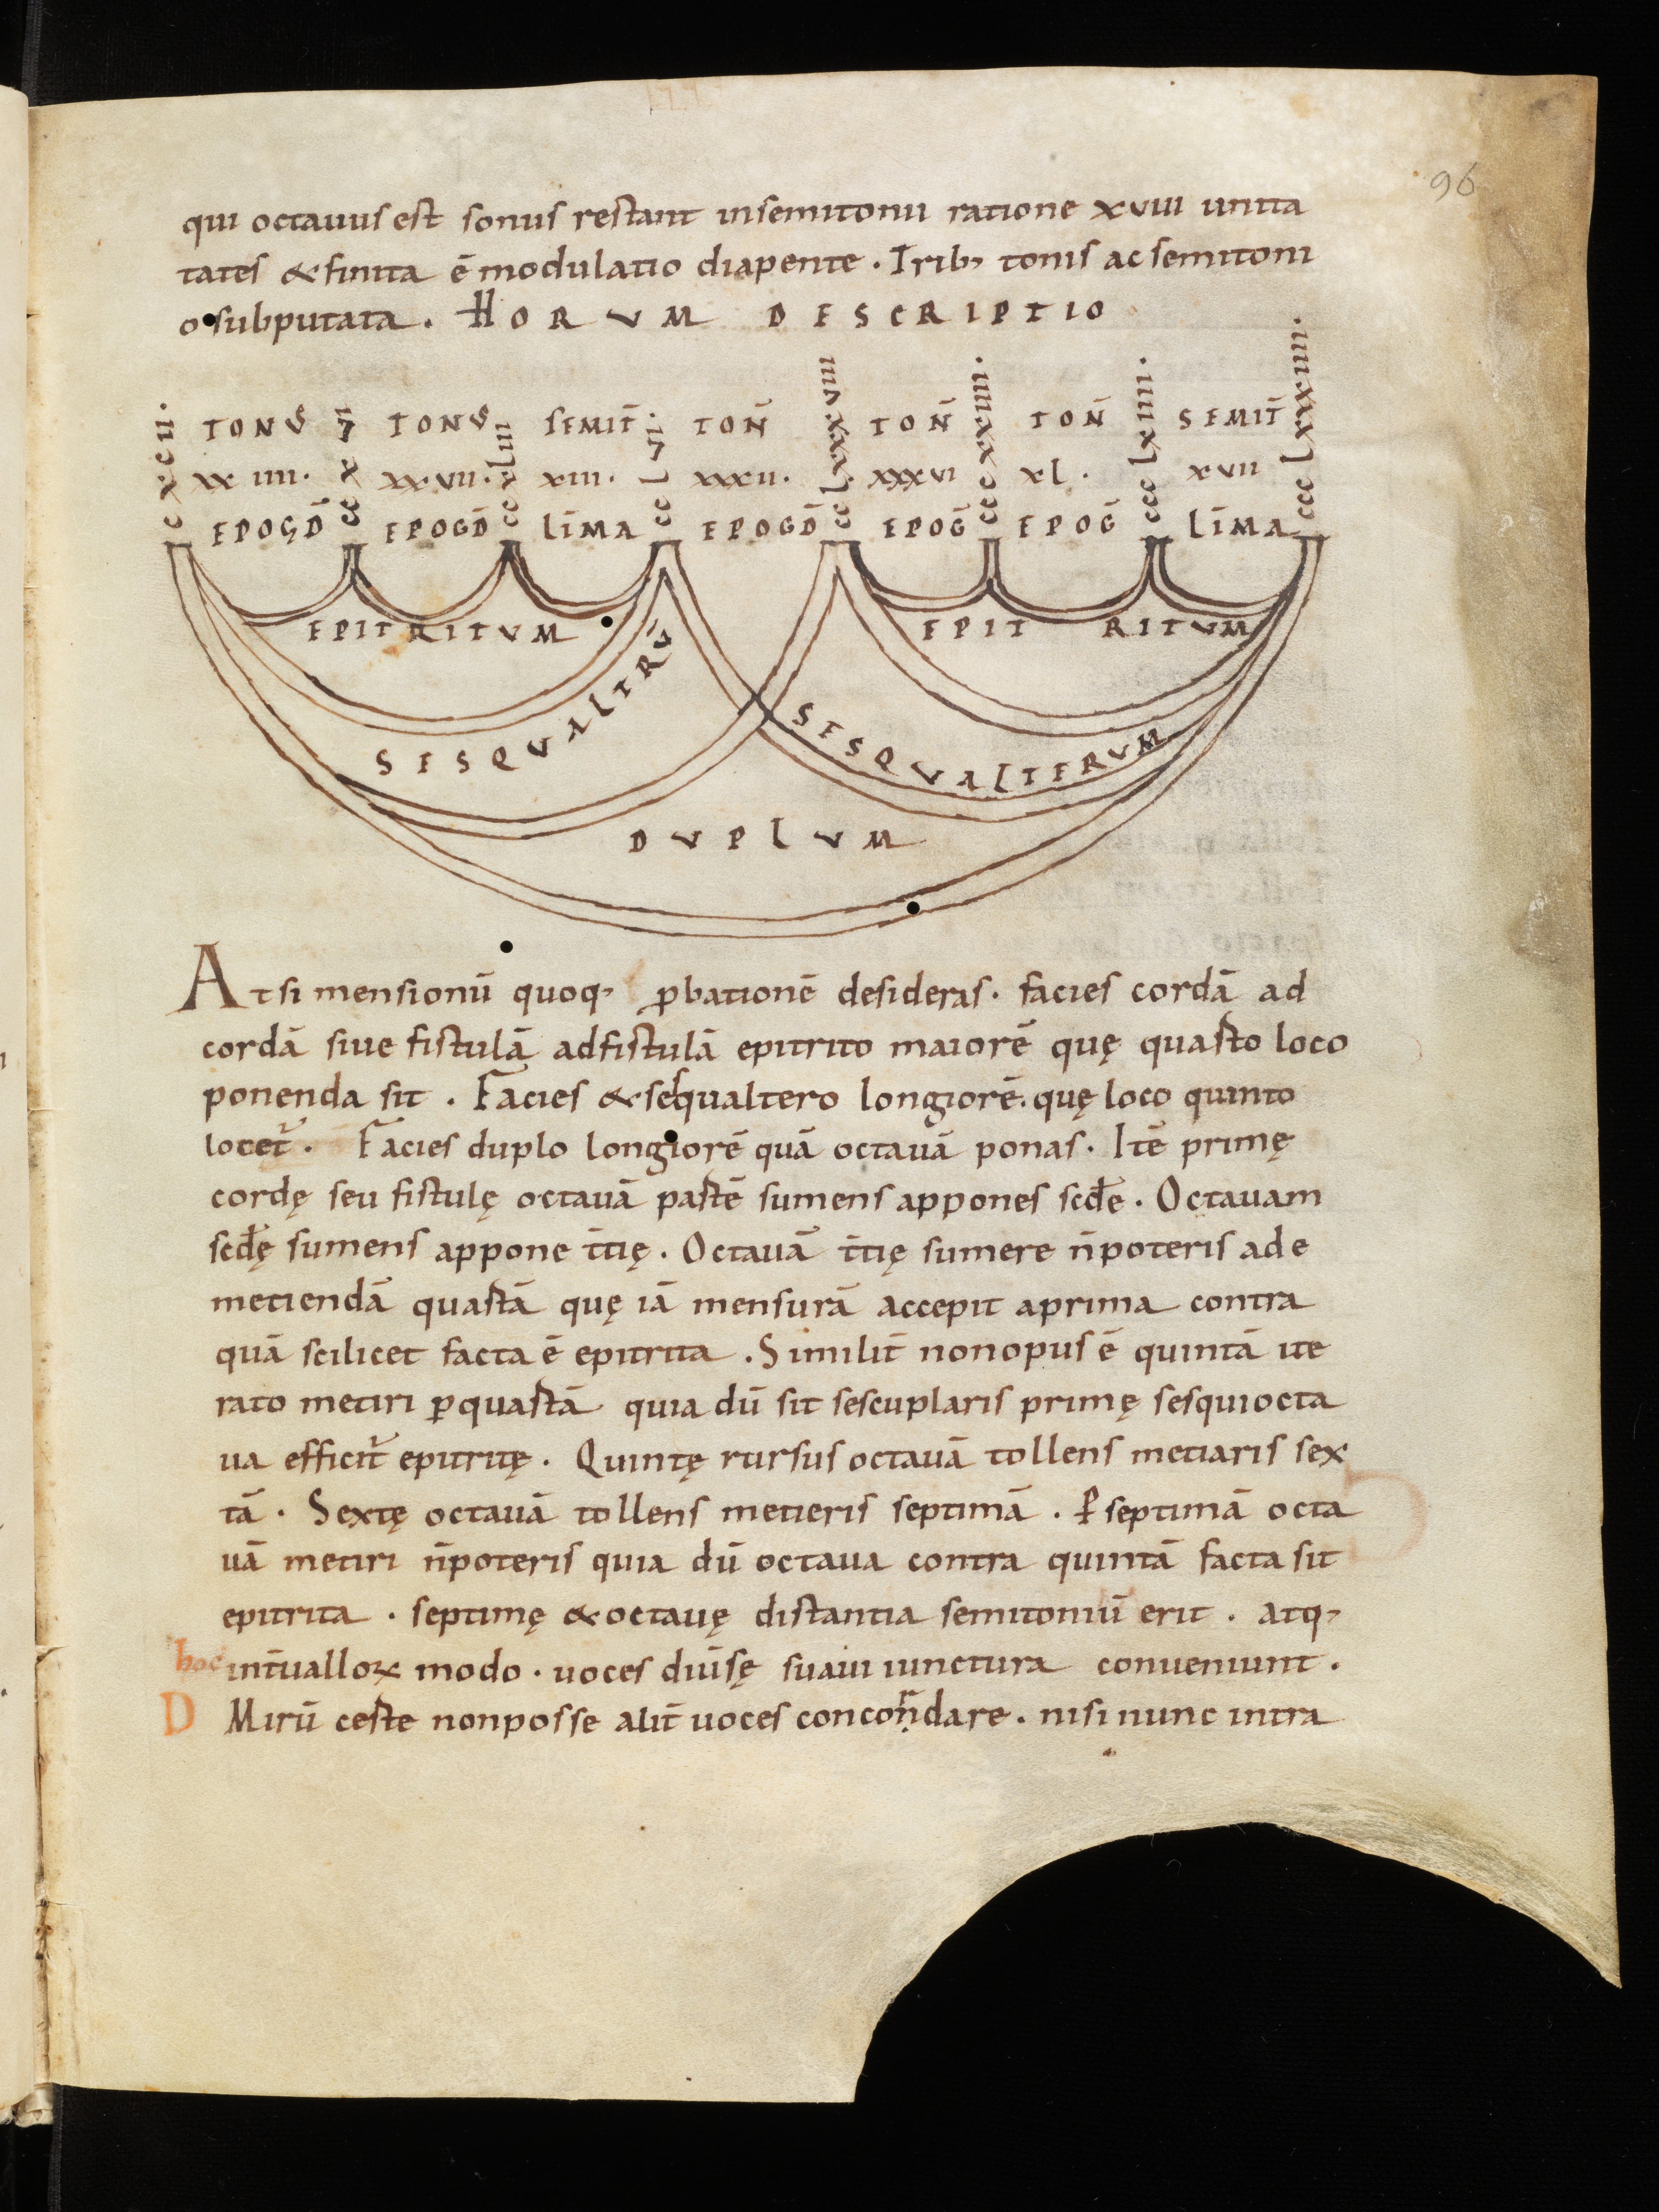 96
qui octauus est sonus restant insemitonii ratione xviii unita
tates &finita ē modulatio diapente . Trib; tonis ac semitoni
o subputata . HORVM DESCRIPTIO
cxcii. ccxvi ccxliii cclvi. cclxxxviii cccxxiiii. ccclxiiii. ccclxxxiiii.
TONVS TONVS SEMIT̄ TON̄ TON̄ TON̄ SEMIT̄
xxiiii. xxvii. xiii. xxxii. xxxvi xl. xvii
EPOGD̄ EPOGD̄ LIMA EPOGD̄ EPOḠ EPOḠ LIMA
EPITRITVM EPITRITVM
SESQVALTRŪ SESQVALTERVM
DVPLVM
At si mensionū quoq; ꝓbationē desideras. facies cordā ad
cordā siue fistulā adfistulā epitrito maiorē quę quarto loco
ponenda sit . Facies &sesqualtero longiorē. quę loco quinto
locet᷑ . Facies duplo longiorē quā octauā ponas. Itē primę
cordę seu fistulę octauā partē sumens appones scđe . Octauam
scđę sumens appone t̄tię . Octauā t̄tię sumere n̄poteris ad e
metiendā quartā quę iā mensurā accepit aprima contra
quā scilicet facta ē epitrita . Similit̄ nonopus ē quintā ite
rato metiri ꝑquartā quia dū sit sescuplaris primę sesquiocta
ua efficit᷑ epitritę . Quintę rursus octauā tollens metiaris sex
tā . Sextę octauā tollens metieris septimā . P̱septimā octa
uā metiri n̄poteris quia dū octaua contra quintā facta sit
epitrita . septimę &octauę distantia semitoniū erit . atq;
hoc int̄ualloꝝ modo . uoces diuisę suaui iunctura conueniunt .
D Mirū certe nonposse alit̄ uoces concorndare . nisi nunc intra